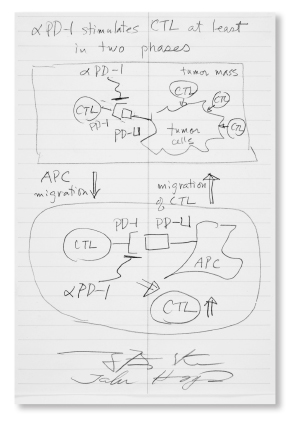 αPD-1 stimulates CTL at least
in two phases
αPD-1
tumor mass
CTL
CTL
CTL
CTL
PD-1
PD-L1
tumor
cells
APC
migration
migration
of CTL
PD-1 PD-L1
CTL
APC
αPD-1
CTL